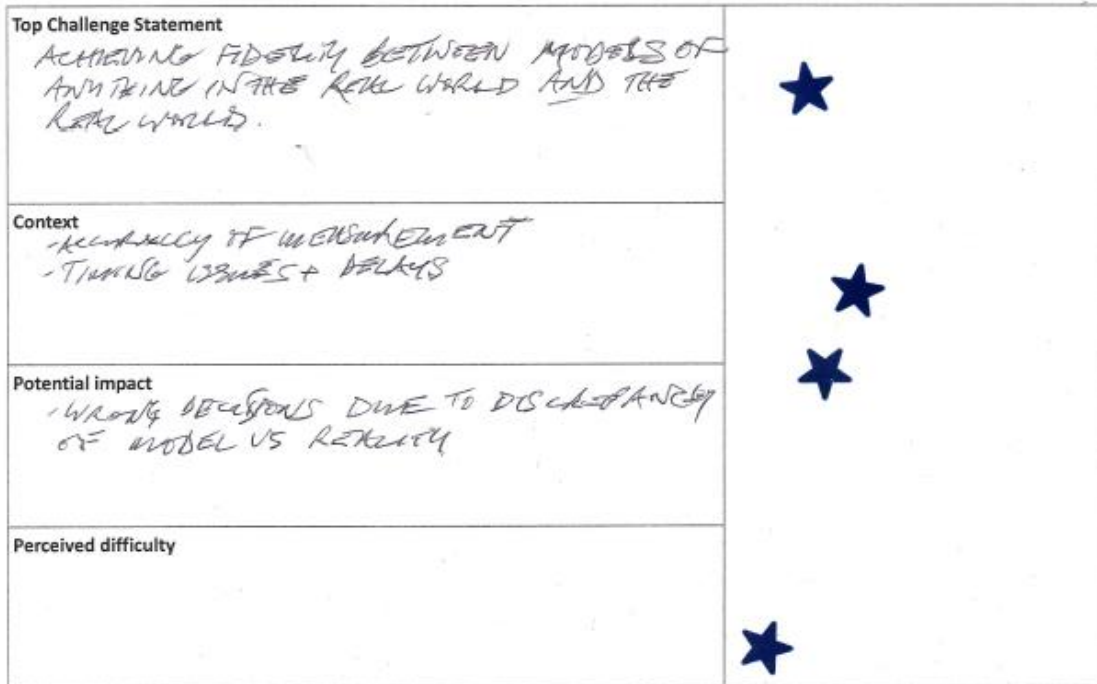 Top Challenge Statement
ACHIEVING FIDELITY BETWEEN MODELS OF
ANYTHING IN THE REAL WORLD AND THE
REAL WORLD.
Context
- ACCURACY OF MEASUREMENT
- TIMING ISSUES + DELAYS
Potential impact
- WRONG DECISIONS DUE TO DISCREPANCY
OF MODEL VS REALITY
Perceived difficulty